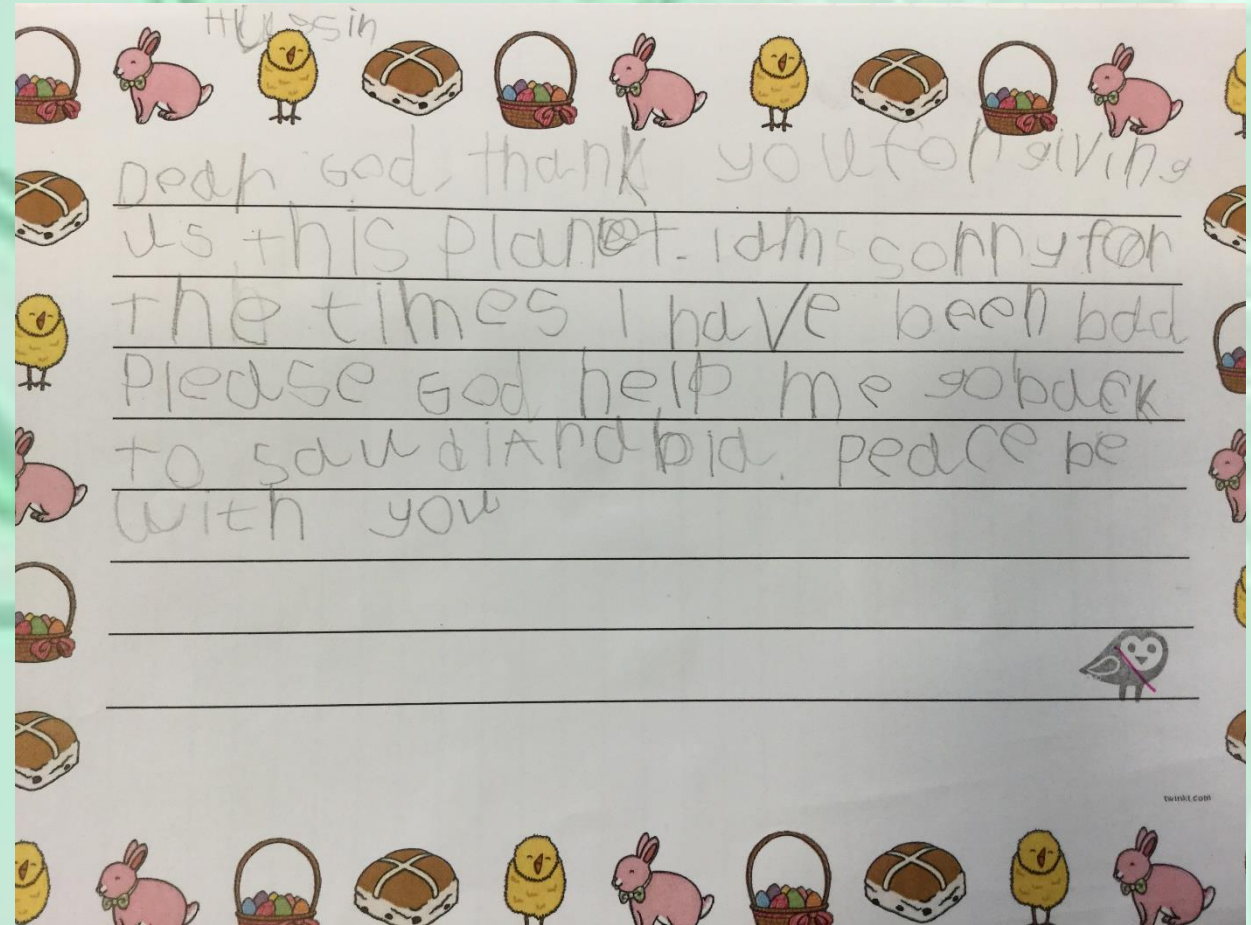 Hussin
Dear God, thank you for giving
us this planet. i am sorry for
the times I have been bad
Please God help me go back
to saudi Arabia. peace be
with you
twinkl.com